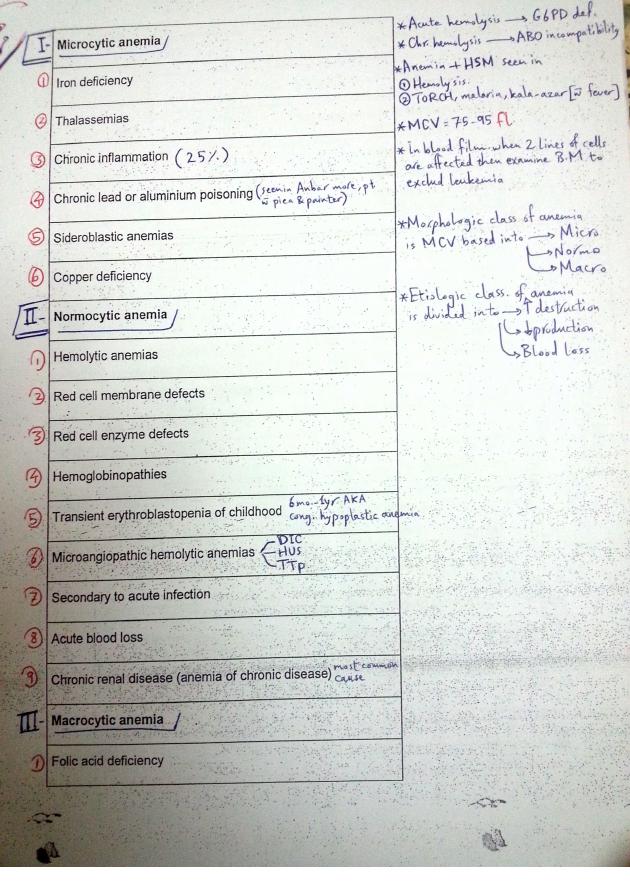 I- Microcytic anemia
① Iron deficiency
② Thalassemias
③ Chronic inflammation (25%)
④ Chronic lead or aluminium poisoning (seen in Anbar more, pt
w̄ pica & painter)
⑤ Sideroblastic anemias
⑥ Copper deficiency
II- Normocytic anemia
① Hemolytic anemias
② Red cell membrane defects
③ Red cell enzyme defects
④ Hemoglobinopathies
⑤ Transient erythroblastopenia of childhood 6mo-4yr AKA
cong. hypoplastic anemia
⑥ Microangiopathic hemolytic anemias DIC
HUS
TTP
⑦ Secondary to acute infection
⑧ Acute blood loss
⑨ Chronic renal disease (anemia of chronic disease) most common
cause
III- Macrocytic anemia
① Folic acid deficiency
* Acute hemolysis → G6PD def.
* Chr. hemolysis → ABO incompatibility
* Anemia + HSM seen in
① Hemolysis.
② TORCH, malaria, kala-azar [w̄ fever]
* MCV = 75-95 fl
* In blood film when 2 lines of cells
are affected then examine B.M to
exclud leukemia
* Morphologic class of anemia
is MCV based into → Micro
→ Normo
→ Macro
* Etiologic class. of anemia
is divided into → ↑ destruction
→ ↓ production
→ Blood loss